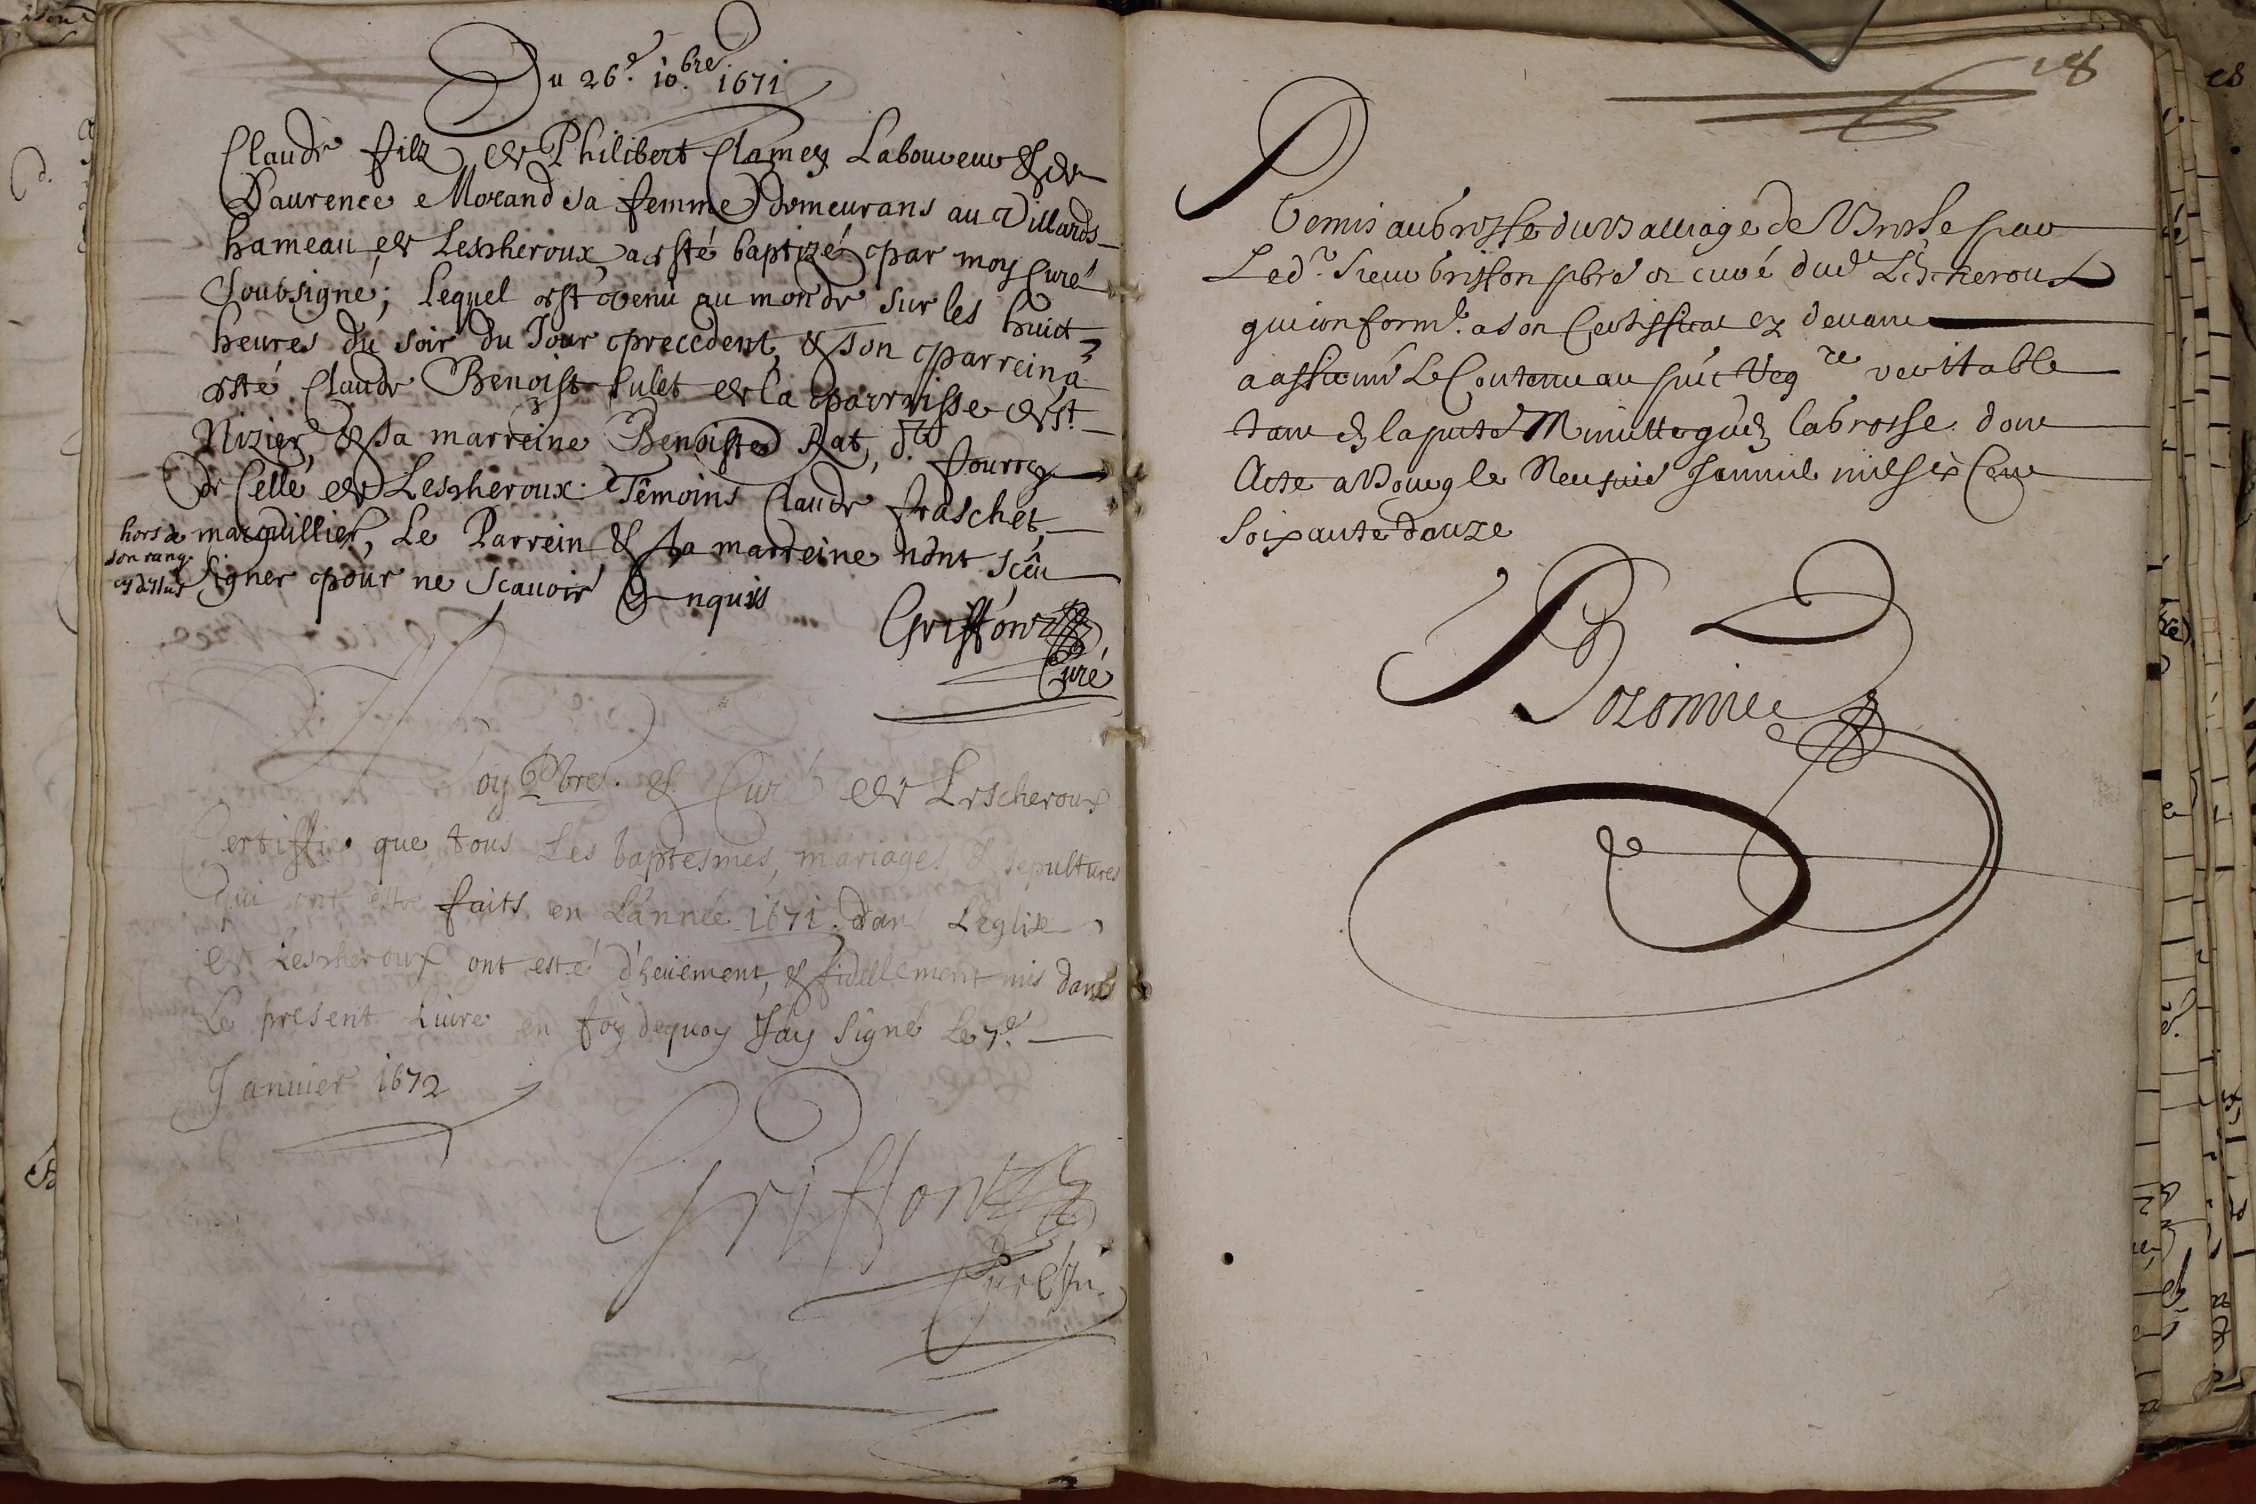 Du 26e. 10bre. 1671
Claude filz de Philibert Clamen Laboureur & de
Laurence Morand sa femme demeurans au Villards
hameau de Lescheroux, a esté baptizé par moy Curé
Soubsigné; lequel est venu au monde sur les huict
heures du soir du Jour precedent, & son parrein a
esté Claude Benoist Sulet de la parroisse de St.
Nizier, & sa marreine Benoiste Rat,
de Celle de Lescheroux. Têmoins Claude fraschet,
marguillier, Le Parrein & La marreine n'ônt sceû
signer pour ne scavoir Enquis
hors de
son rang
cy dessus
Griffon
Curé
oy Pbre. & Curé de Lescheroux
Certiffie que tous Les baptesmes, mariages & sepultures
qui ont estre faits en L'année 1671. dans L'eglise
de Lescheroux ont esté d'heüement, & fidellement mis dans
Le present Livre en foy dequoy J'ay signé Le 7e.
Janvier 1672
Griffon
Curé
28
Remis au Greffe du Balliage de Bresse par
Led. Sieur Griffon pbre & curé dud. Lescheroux
qui conform. a son Certifficat cy devant
a affirmé Le Contenu au pnt Reg re veritable
tant en la pnte Minutte qu'en la grosse dont
Acte a Bourg le Neufvie Janvie mil six Cent
Soixante douze
28